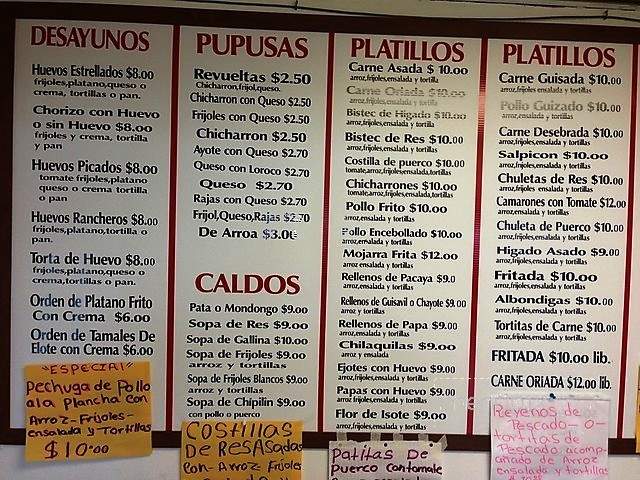 DESAYUNOS
Huevos Estrellados $8.00
frijoles,platano,queso o
crema, tortillas o pan.
Chorizo con Huevo
o sin Huevo $8.00
frijoles y crema, tortillas
y pan
Huevos Picados $8.00
tomate frijoles,platano
queso o crema tortilla
o pan
Huevos Rancheros $8.00
frijoles,platano,tortillas o
pan.
Torta de Huevo $8.00
frijoles,platano,queso o
crema,tortillas o pan.
Orden de Platano Frito
Con Crema $6.00
Orden de Tamales De
Elote con Crema $6.00
"ESPECIAL"
Pechuga de Pollo
ala Plancha con
Arroz-Frijoles-
ensalada y Tortillas
$10.00
PUPUSAS
Revueltas $2.50
Chicharron,frijol,queso.
Chicharron con Queso $2.50
Frijoles con Queso $2.50
Chicharron $2.50
Ayote con Queso $2.70
Queso con Loroco $2.70
Queso $2.70
Rajas con Queso $2.70
Frijol,Queso,Rajas $2.70
De Arroa $3.00
CALDOS
Pata o Mondongo $9.00
Sopa de Res $9.00
Sopa de Gallina $10.00
Sopa de Frijoles $9.00
arroz y tortillas
Sopa de Frijoles Blancos $9.00
arroz y tortillas
Sopa de Chipilin $9.00
con pollo o puerco
COSTILLAS
De ResASadas
Con-Arroz Frijoles
PLATILLOS
Carne Asada $ 10.00
arroz,frijoles,ensalada y tortilla
Carne Oriada $10.00
arroz,frijoles,ensalada y tortilla
Bistec de Higado $10.00
arroz,frijoles,ensalada y tortillas
Bistec de Res $10.00
arroz,frijoles,ensalada y tortillas
Costilla de puerco $10.00
tomate,arroz,frijoles,ensalada,tortillas
Chicharrones $10.00
arroz,frijoles,ensalada y tortillas
Pollo Frito $10.00
arroz,ensalada y tortillas
Pollo Encebollado $10.00
arroz,ensalada y tortillas
Mojarra Frita $12.00
arroz,ensalada y tortillas
Rellenos de Pacaya $9.0
arroz,ensalada y tortillas
Rellenos de Guisavil o Chayote $9.00
arroz y tortillas
Rellenos de Papa $9.00
arroz,ensalada y tortillas
Chilaquilas $9.00
arroz y ensalada
Ejotes con Huevo $9.00
arroz,ensalada y tortillas
Papas con Huevo $9.00
arroz,ensalada y tortillas
Flor de Isote $9.00
arroz,ensalada y tortillas
Patitas De
Puerco Contomale
PLATILLOS
Carne Guisada $10.00
arroz,frijoles,ensalada y tortillas
Pollo Guizado $10.00
arroz,frijoles,ensalada y tortillas
Carne Desebrada $10.00
arroz,frijoles,ensalada y tortillas
Salpicon $10.00
arroz,frijoles,ensalada y tortillas
Chuletas de Res $10.00
arroz,frijoles ensalada y tortillas
Camarones con Tomate $12.00
arroz,ensalada y tortillas
Chuleta de Puerco $10.00
arroz,frijoles,ensalada y tortillas
Higado Asado $9.00
arroz,frijoles,ensalada y tortillas
Fritada $10.00
arroz,ensalada y tortillas
Albondigas $10.00
arroz,ensalada y tortillas
Tortitas de Carne $10.00
arroz,ensalada y tortillas
FRITADA $10.00 lib.
CARNE ORIADA $12.00 lib.
Reyenos de
Pescado-o-
tortitas de
Pescado acomp-
añado de Arroz
ensalada y tortillas